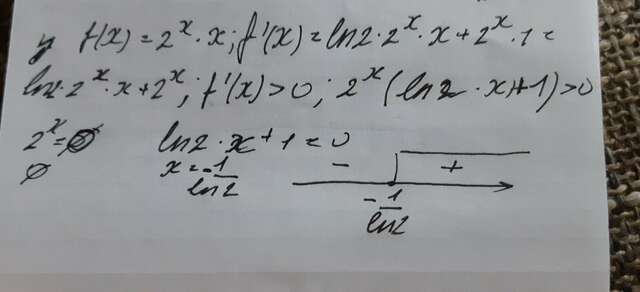 y f(x) = 2^x · x; f'(x) = ln2 · 2^x · x + 2^x · 1 =
ln2 · 2^x · x + 2^x; f'(x) > 0; 2^x (ln2 · x + 1) > 0
2^x = 0 ln2 · x + 1 = 0
∅ x = -1/ln2 - +
-1/ln2